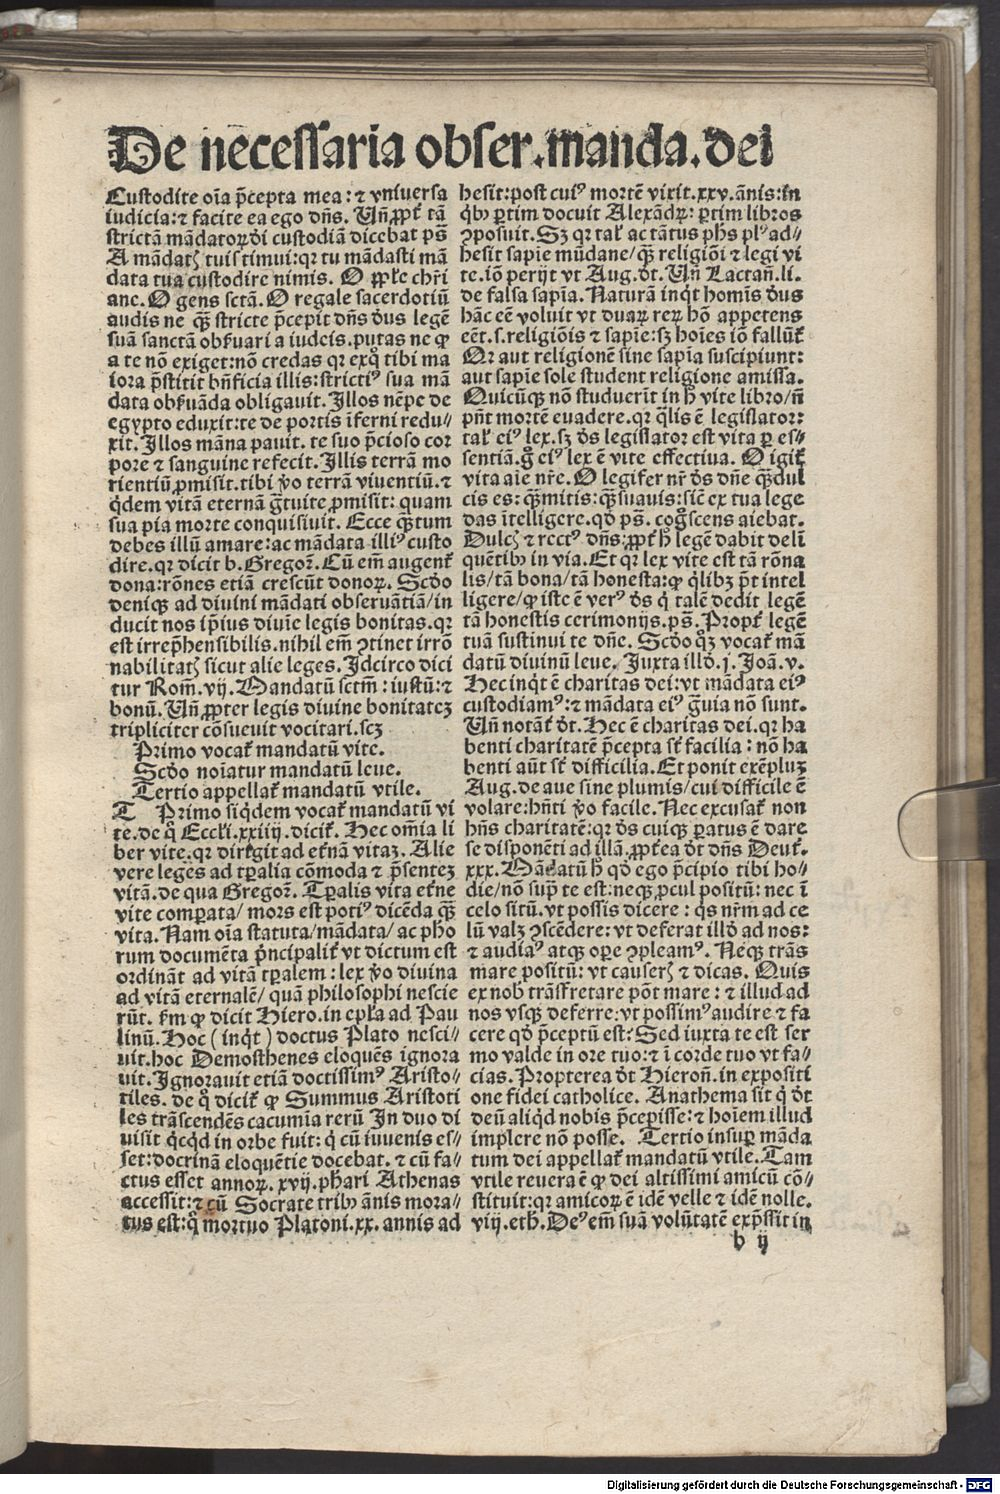 De necessaria obser.manda.dei
Custodite oīa p̄cepta mea: ⁊ vniuersa
iudicia: ⁊ facite ea ego dn̄s. Uñ ꝓpt̄ tā
strictā mādatoꝝ dī custodiā dicebat ps̄
A mādatꝭ tuis timui: qꝛ tu mādasti mā
data tua custodire nimis. O ꝓpt̄e chr̄i
ane. O gens sctā. O regale sacerdotiū
audis ne qꝫ̄ stricte p̄cepit dn̄s deus legē
suā sanctā obẜuari a iudeis. putas ne ꝙ
a te nō exiget: nō credas qꝛ exq̇ tibi ma
iora p̄stitit bn̄ficia illis: stricti⁹ sua mā
data obẜuāda obligauit. Illos nēpe de
egypto eduxit: te de portis īferni redu⸗
xit. Illos māna pauit. te suo p̄cioso cor
pore ⁊ sanguine refecit. Illis terrā mo
rientiū ꝓmisit. tibi ꝟo terrā viuentiū. ⁊
q̇dem vitā eternā gr̄tuite ꝓmisit: quam
sua pia morte conquisiuit. Ecce qꝫ̄tum
debes illū amare: ac mādata illi⁹ custo
dire. qꝛ dicit b. Gregoꝝ. Cū em̄ augent̄
dona: rōnes etiā crescūt donoꝝ. Scd̓o
deniqꝫ ad diuini mādati obseruātiā/ in
ducit nos ip̄ius diuīe legis bonitas. qꝛ
est irrep̄hensibilis. nihil em̄ ꝯtinet irrō
nabilitatꝭ sicut alie leges. Idcirco dici
tur Rom̄. vij. Mandatū sctm̄: iustū: ⁊
bonū. Uñ ꝓpter legis diuine bonitatez
tripliciter cōsueuit vocitari. scꝫ
Primo vocat̄ mandatū vite.
Scd̓o noīatur mandatū leue.
Tertio appellat̄ mandatū vtile.
T Primo siq̇dem vocat̄ mandatū vi
te. de q̊ Eccl̄i. xxiiij. dicit̄. Hec om̄ia li
ber vite. qꝛ dirigit ad et̄nā vitaꝫ. Alie
vere leges ad tꝑalia cōmoda ⁊ p̄sentez
vitā. de qua Gregoꝝ. Tꝑalis vita et̄ne
vite comꝑata/ mors est poti⁹ dicēda qꝫ̄
vita. Nam oīa statuta/ mādata/ ac pho
rum documēta p̓ncipalit̄ vt dictum est
ordināt ad vitā tꝑalem: lex ꝟo diuina
ad vitā eternalē/ quā philosophi nescie
rūt. ẜm ꝙ dicit Hiero. in epl̄a ad Pau
linū. Hoc (inq̇t) doctus Plato nesci⸗
uit. hoc Demosthenes eloquēs ignora
uit. Ignorauit etiā doctissim⁹ Aristo⸗
tiles. de q̊ dicit̄ ꝙ Summus Aristoti
les trāscendēs cacumīa rerū In duo di
uisit q̇cq̇d in orbe fuit: q̇ cū iuuenis es⸗
set: docrinā eloquētie docebat. ⁊ cū fa⸗
ctus esset annoꝝ. xvij. phari Athenas
accessit: ⁊ cū Socrate tribꝰ ānis mora⸗
tus est: q̊ mortuo Platoni. xx. annis ad
hesit: post cui⁹ mortē vixit. xxv. ānis: in
q̇bꝰ ꝑtim docuit Alexādꝝ: ꝑtim libros
ꝯposuit. Sꝫ qꝛ tal̄ ac tātus ph̄s pl⁹ ad⸗
hesit sapīe mūdane/ qꝫ̄ religiōi ⁊ legi vi
te. iō perijt vt Aug. d̄t. Uñ Lactañ. li.
de falsa sapīa. Naturā inq̇t homīs deus
hāc eē voluit vt duaꝝ reꝝ hō appetens
eēt. s. religiōis ⁊ sapīe: sꝫ hoīes iō fallūt̄
Qꝛ aut religionē sine sapīa suscipiunt:
aut sapīe sole student religione amissa.
Quicūqꝫ nō studuerit in h̄ vite libro/ ñ
pn̄t mortē euadere. qꝛ q̄lis ē legislator:
tal̄ ei⁹ lex. sꝫ d̓s legislator est vita ꝑ es⸗
sentiā. g̊ ei⁹ lex ē vite effectiua. O igit̄
vita aīe nr̄e. O legifer nr̄ d̓s dn̄e qꝫ̄ dul
cis es: qꝫ̄ mitis: qꝫ̄ suauis: sic̄ ex tua lege
das ītelligere. qd̓ ps̄. cog̊scens aiebat.
Dulcꝭ ⁊ rect⁹ dn̄s: ꝓpt̄ h̄ legē dabit delī
quētibꝰ in via. Et qꝛ lex vite est tā rōna
lis/ tā bona/ tā honesta: ꝙ q̄libꝫ p̄t intel
ligere/ ꝙ iste ē ver⁹ d̓s q̇ talē dedit legē
tā honestis cerimonijs. ps̄. Propt̄ legē
tuā sustinui te dn̄e. Scd̓o q̊ꝫ vocat̄ mā
datū diuinū leue. Juxta illd̓. j. Joā. v.
Hec inq̇t ē charitas dei: vt mādata ei⁹
custodiam⁹: ⁊ mādata ei⁹ gͣuia nō sunt.
Uñ notāt̄ d̄t. Hec ē charitas dei. qꝛ ha
benti charitatē p̄cepta st̄ facilia: nō ha
benti aūt st̄ difficilia. Et ponit exēpluꝫ
Aug. de aue sine plumis/ cui difficile ē
volare: hn̄ti ꝟo facile. Nec excusat̄ non
hn̄s charitatē: qꝛ d̓s cuiqꝫ ꝑatus ē dare
se disponēti ad illā. ꝓpt̄ea d̄t dn̄s Deut̄.
xxx. Mādatū h̄ qd̓ ego p̄cipio tibi ho⸗
die/ nō supͣ te est: neqꝫ ꝓcul positū: nec ī
celo sitū. vt possis dicere: q̇s nr̄m ad ce
lū valꝫ ꝯscēdere: vt deferat illd̓ ad nos:
⁊ audia⁹ atqꝫ oꝑe ꝯpleam⁹. Neqꝫ trās
mare positū: vt causerꝭ ⁊ dicas. Quis
ex nob̄ trāsfretare pōt mare: ⁊ illud ad
nos vsqꝫ deferre: vt possim⁹ audire ⁊ fa
cere qd̓ p̄ceptū est: Sed iuxta te est ser
mo valde in ore tuo: ⁊ ī corde tuo vt fa⸗
cias. Propterea d̄t Hieroñ. in expositi
one fidei catholice. Anathema sit q̇ d̄t
deū aliq̇d nobis p̄cepisse: ⁊ hoīem illud
implere nō posse. Tertio insuꝑ māda
tum dei appellat̄ mandatū vtile. Tam
vtile reuera ē ꝙ dei altissimi amicū cō⸗
stituit: qꝛ amicoꝝ ē idē velle ⁊ idē nolle.
viij. eth̄. De⁹ em̄ suā volūtatē exp̄ssit in
b ij
Digitalisierung gefördert durch die Deutsche Forschungsgemeinschaft - DFG